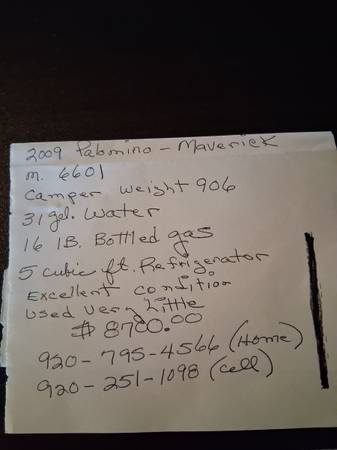 2009 Palomino - Maverick
m. 6601
Camper weight 906
31 gel. water
16 lB. Bottled gas
5 cubic ft. Refrigerator
Excellent condition
used very little
$ 8700.00
920-795-4566 (Home)
920-251-1098 (cell)